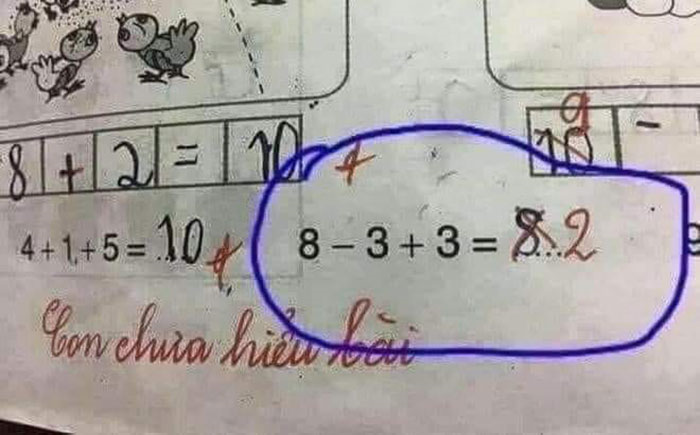 9
8 + 2 = 10
10 -
4 + 1 + 5 = 10
8 − 3 + 3 = 8 2
Con chưa hiểu bài